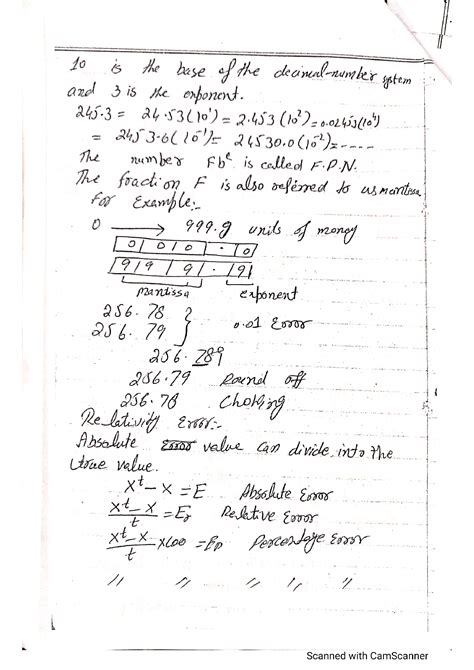 10 is the base of the decimal-number system
and 3 is the exponent.
245.3 = 24.53(10¹) = 2.453(10²) = 0.02453(10⁴)
= 2453.6(10⁻¹) = 24530.0(10⁻²) = -----
The number Fbᵉ is called F.P.N.
The fraction F is also referred to as mantissa
For Example:-
0 → 999.9 units of money
0 0 0 . 0
9 9 9 . 9
mantissa exponent
256.78
256.79 } 0.01 Error
256.789
256.79 Round off
256.78 Choking
Relativity Error:-
Absolute Error value can divide into the
true value.
xᵗ - x = E Absolute Error
xᵗ - x / t = Er Relative Error
xᵗ - x / t × 100 = Ep Percentage Error
// // // // //
Scanned with CamScanner